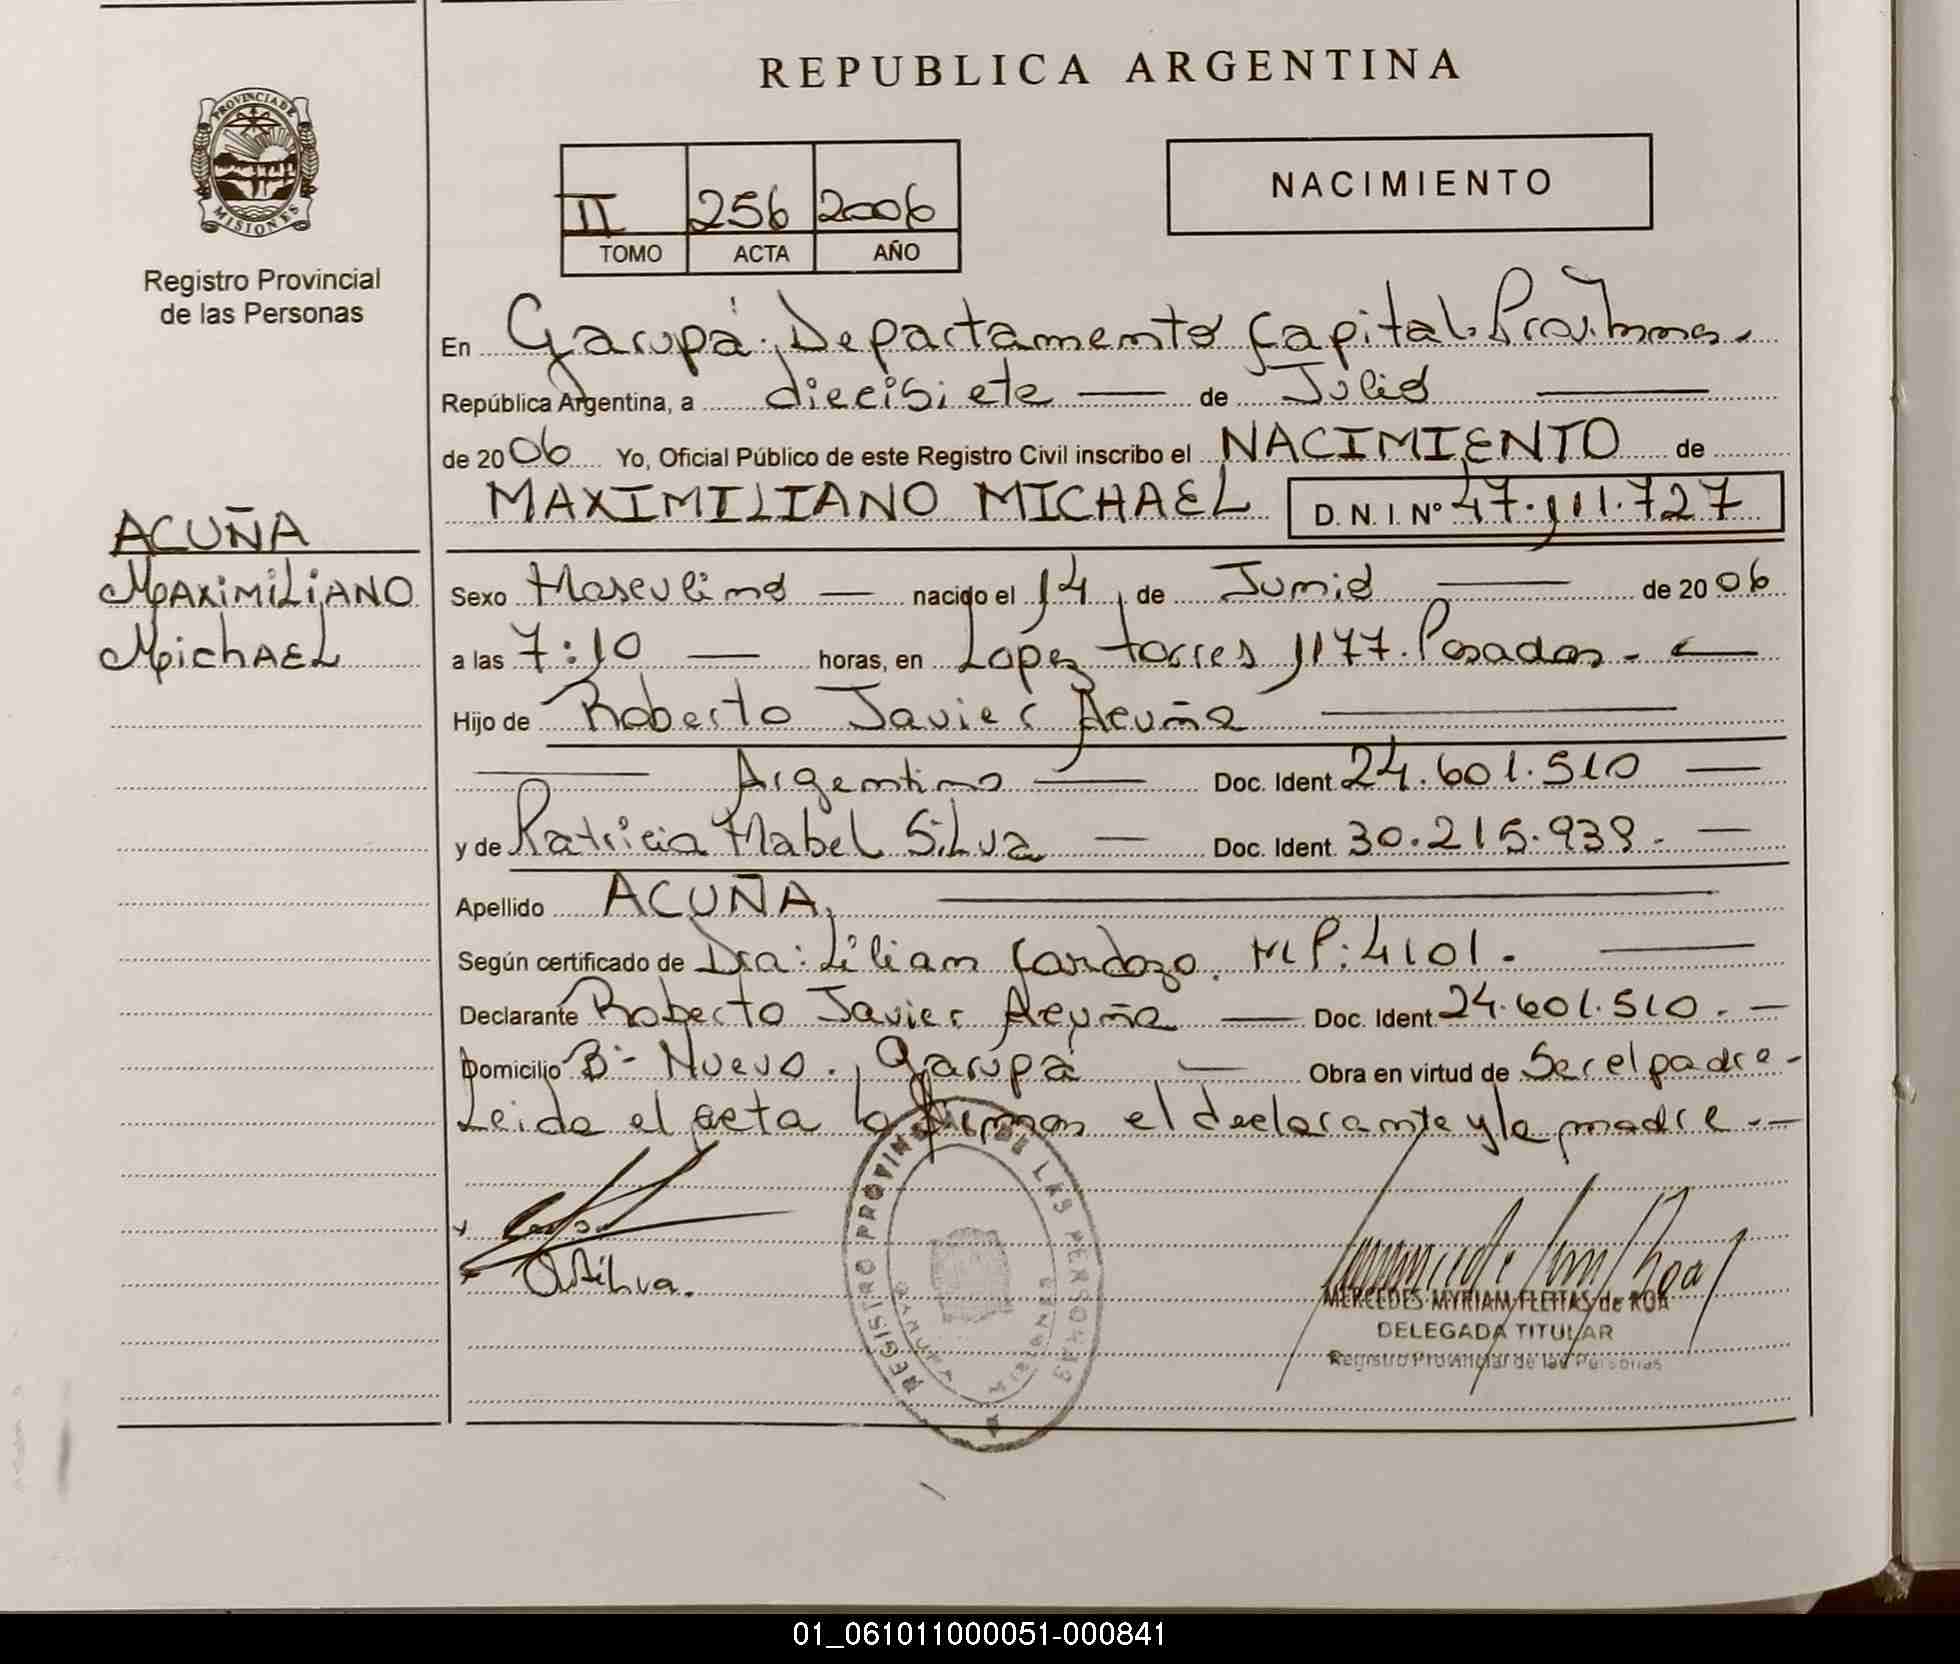 REPUBLICA ARGENTINA
PROVINCIA DE MISIONES
Registro Provincial
de las Personas
II 256 2006
TOMO ACTA AÑO
NACIMIENTO
En Garupá. Departamento Capital. Prov. Mnes.
República Argentina, a diecisiete — de Julio —
de 2006 Yo, Oficial Público de este Registro Civil inscribo el NACIMIENTO de
MAXIMILIANO MICHAEL D.N.I. Nº 47.111.727
ACUÑA
MAXIMILIANO
MichAEL
Sexo Masculino — nacido el 14 de Junio — de 2006
a las 7:10 — horas, en Lopez torres 1177. Posadas. —
Hijo de Roberto Javier Acuña —
— Argentino — Doc. Ident. 24.601.510 —
y de Patricia Mabel Silva — Doc. Ident. 30.215.939. —
Apellido ACUÑA, —
Según certificado de Dra: Lilian Cardozo. MP: 4101. —
Declarante Roberto Javier Acuña — Doc. Ident. 24.601.510. —
Domicilio Bº- Nuevo. Garupá — Obra en virtud de Ser el padre-
Leida el acta la firman el declarante y la madre.—
Silva.
REGISTRO PROVINCIAL DE LAS PERSONAS
MERCEDES MYRIAM FLEITAS de ROA
DELEGADA TITULAR
Registro Provincial de las Personas
01_061011000051-000841